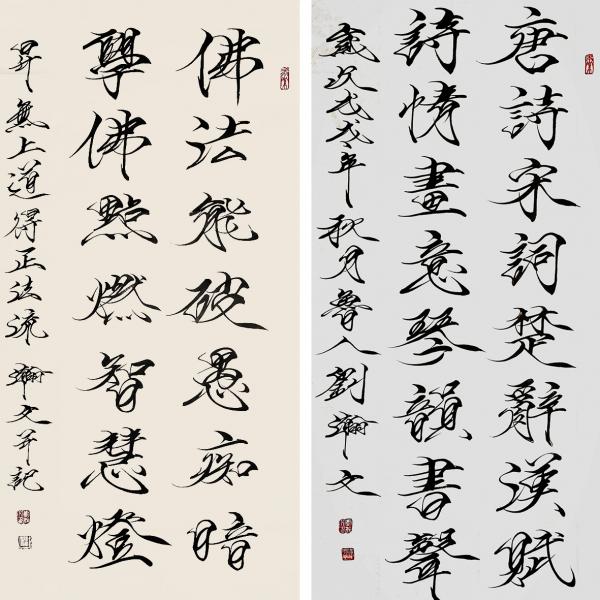 唐詩宋詞楚辭漢賦
詩情畫意琴韻書聲
歲次戊戌年秋月魯人劉瀚文
佛法能破愚痴暗
學佛點燃智慧燈
昇無上道得正法流 瀚文并記